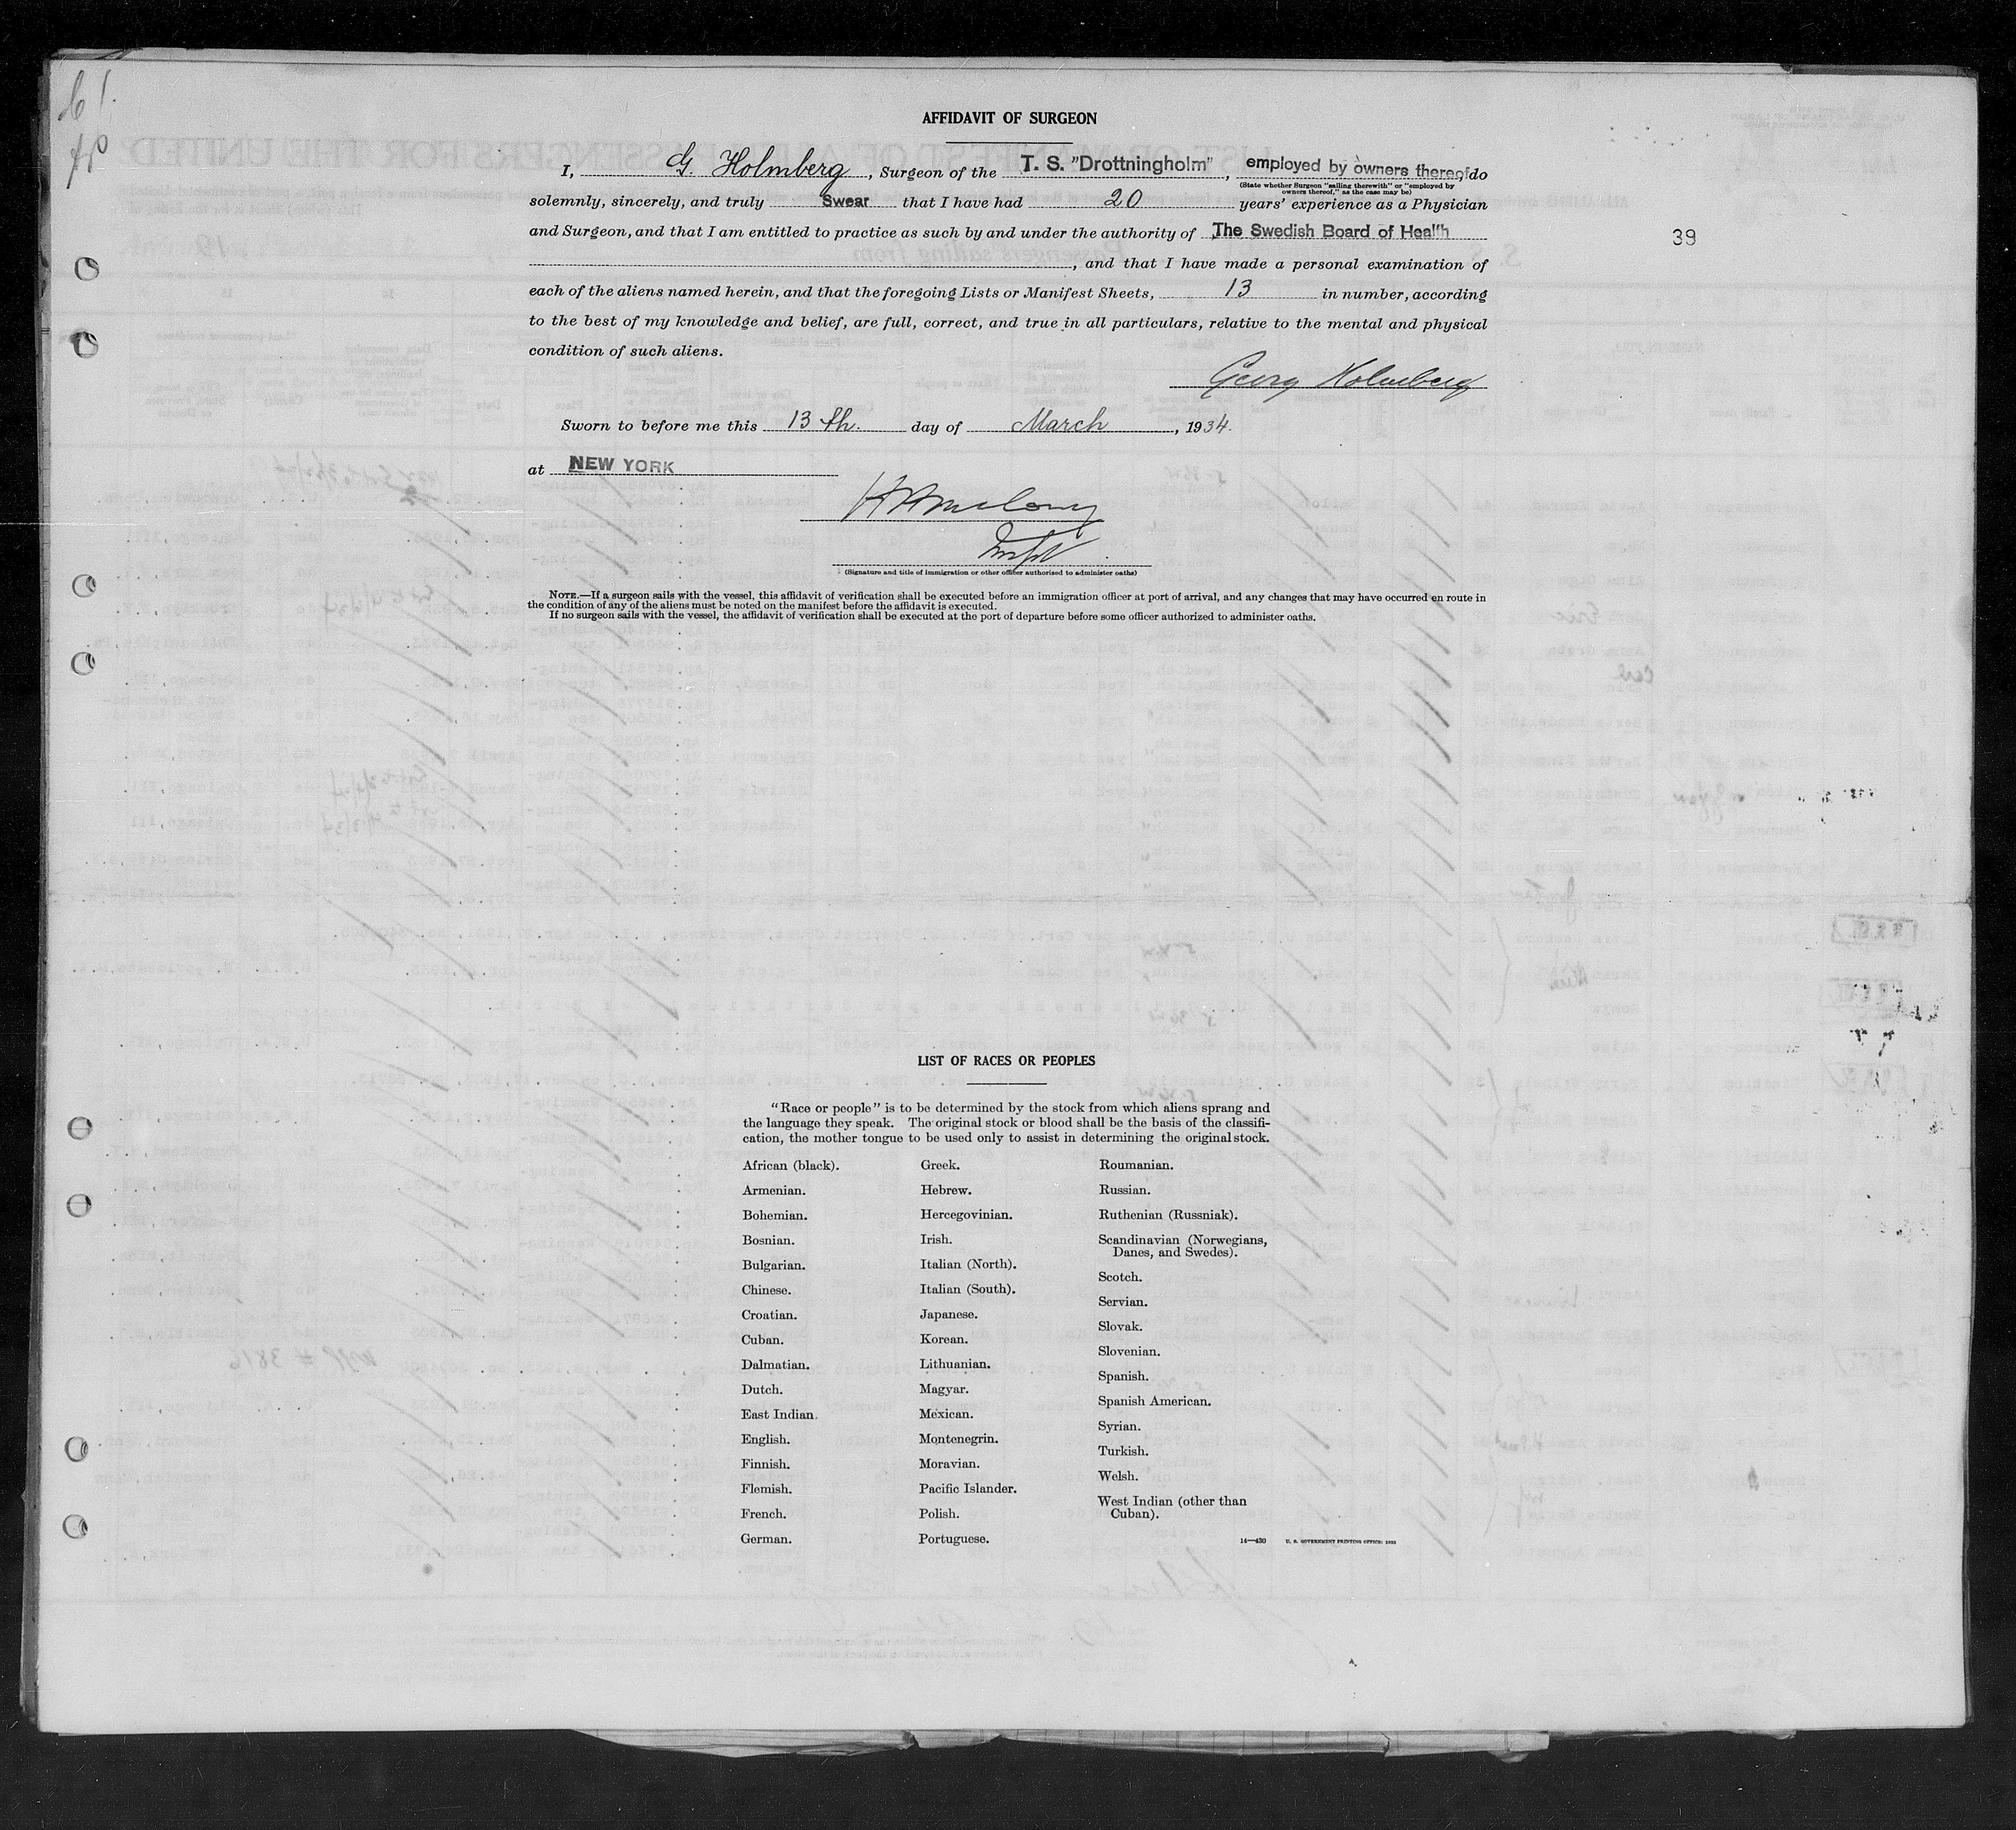 AFFIDAVIT OF SURGEON
I, G. Holmberg, Surgeon of the T. S. "Drottningholm", employed by owners thereof do
(State whether Surgeon "sailing therewith" or "employed by
owners thereof," as the case may be)
solemnly, sincerely, and truly Swear that I have had 20 years' experience as a Physician
and Surgeon, and that I am entitled to practice as such by and under the authority of The Swedish Board of Health
39
, and that I have made a personal examination of
each of the aliens named herein, and that the foregoing Lists or Manifest Sheets, 13 in number, according
to the best of my knowledge and belief, are full, correct, and true in all particulars, relative to the mental and physical
condition of such aliens.
Georg Holmberg
Sworn to before me this 13 th. day of March, 1934.
at NEW YORK
(Signature and title of immigration or other officer authorized to administer oaths)
NOTE.—If a surgeon sails with the vessel, this affidavit of verification shall be executed before an immigration officer at port of arrival, and any changes that may have occurred en route in
the condition of any of the aliens must be noted on the manifest before the affidavit is executed.
If no surgeon sails with the vessel, the affidavit of verification shall be executed at the port of departure before some officer authorized to administer oaths.
LIST OF RACES OR PEOPLES
"Race or people" is to be determined by the stock from which aliens sprang and
the language they speak. The original stock or blood shall be the basis of the classifi-
cation, the mother tongue to be used only to assist in determining the original stock.
African (black).
Armenian.
Bohemian.
Bosnian.
Bulgarian.
Chinese.
Croatian.
Cuban.
Dalmatian.
Dutch.
East Indian.
English.
Finnish.
Flemish.
French.
German.
Greek.
Hebrew.
Hercegovinian.
Irish.
Italian (North).
Italian (South).
Japanese.
Korean.
Lithuanian.
Magyar.
Mexican.
Montenegrin.
Moravian.
Pacific Islander.
Polish.
Portuguese.
Roumanian.
Russian.
Ruthenian (Russniak).
Scandinavian (Norwegians,
Danes, and Swedes).
Scotch.
Servian.
Slovak.
Slovenian.
Spanish.
Spanish American.
Syrian.
Turkish.
Welsh.
West Indian (other than
Cuban).
14—430 U. S. GOVERNMENT PRINTING OFFICE: